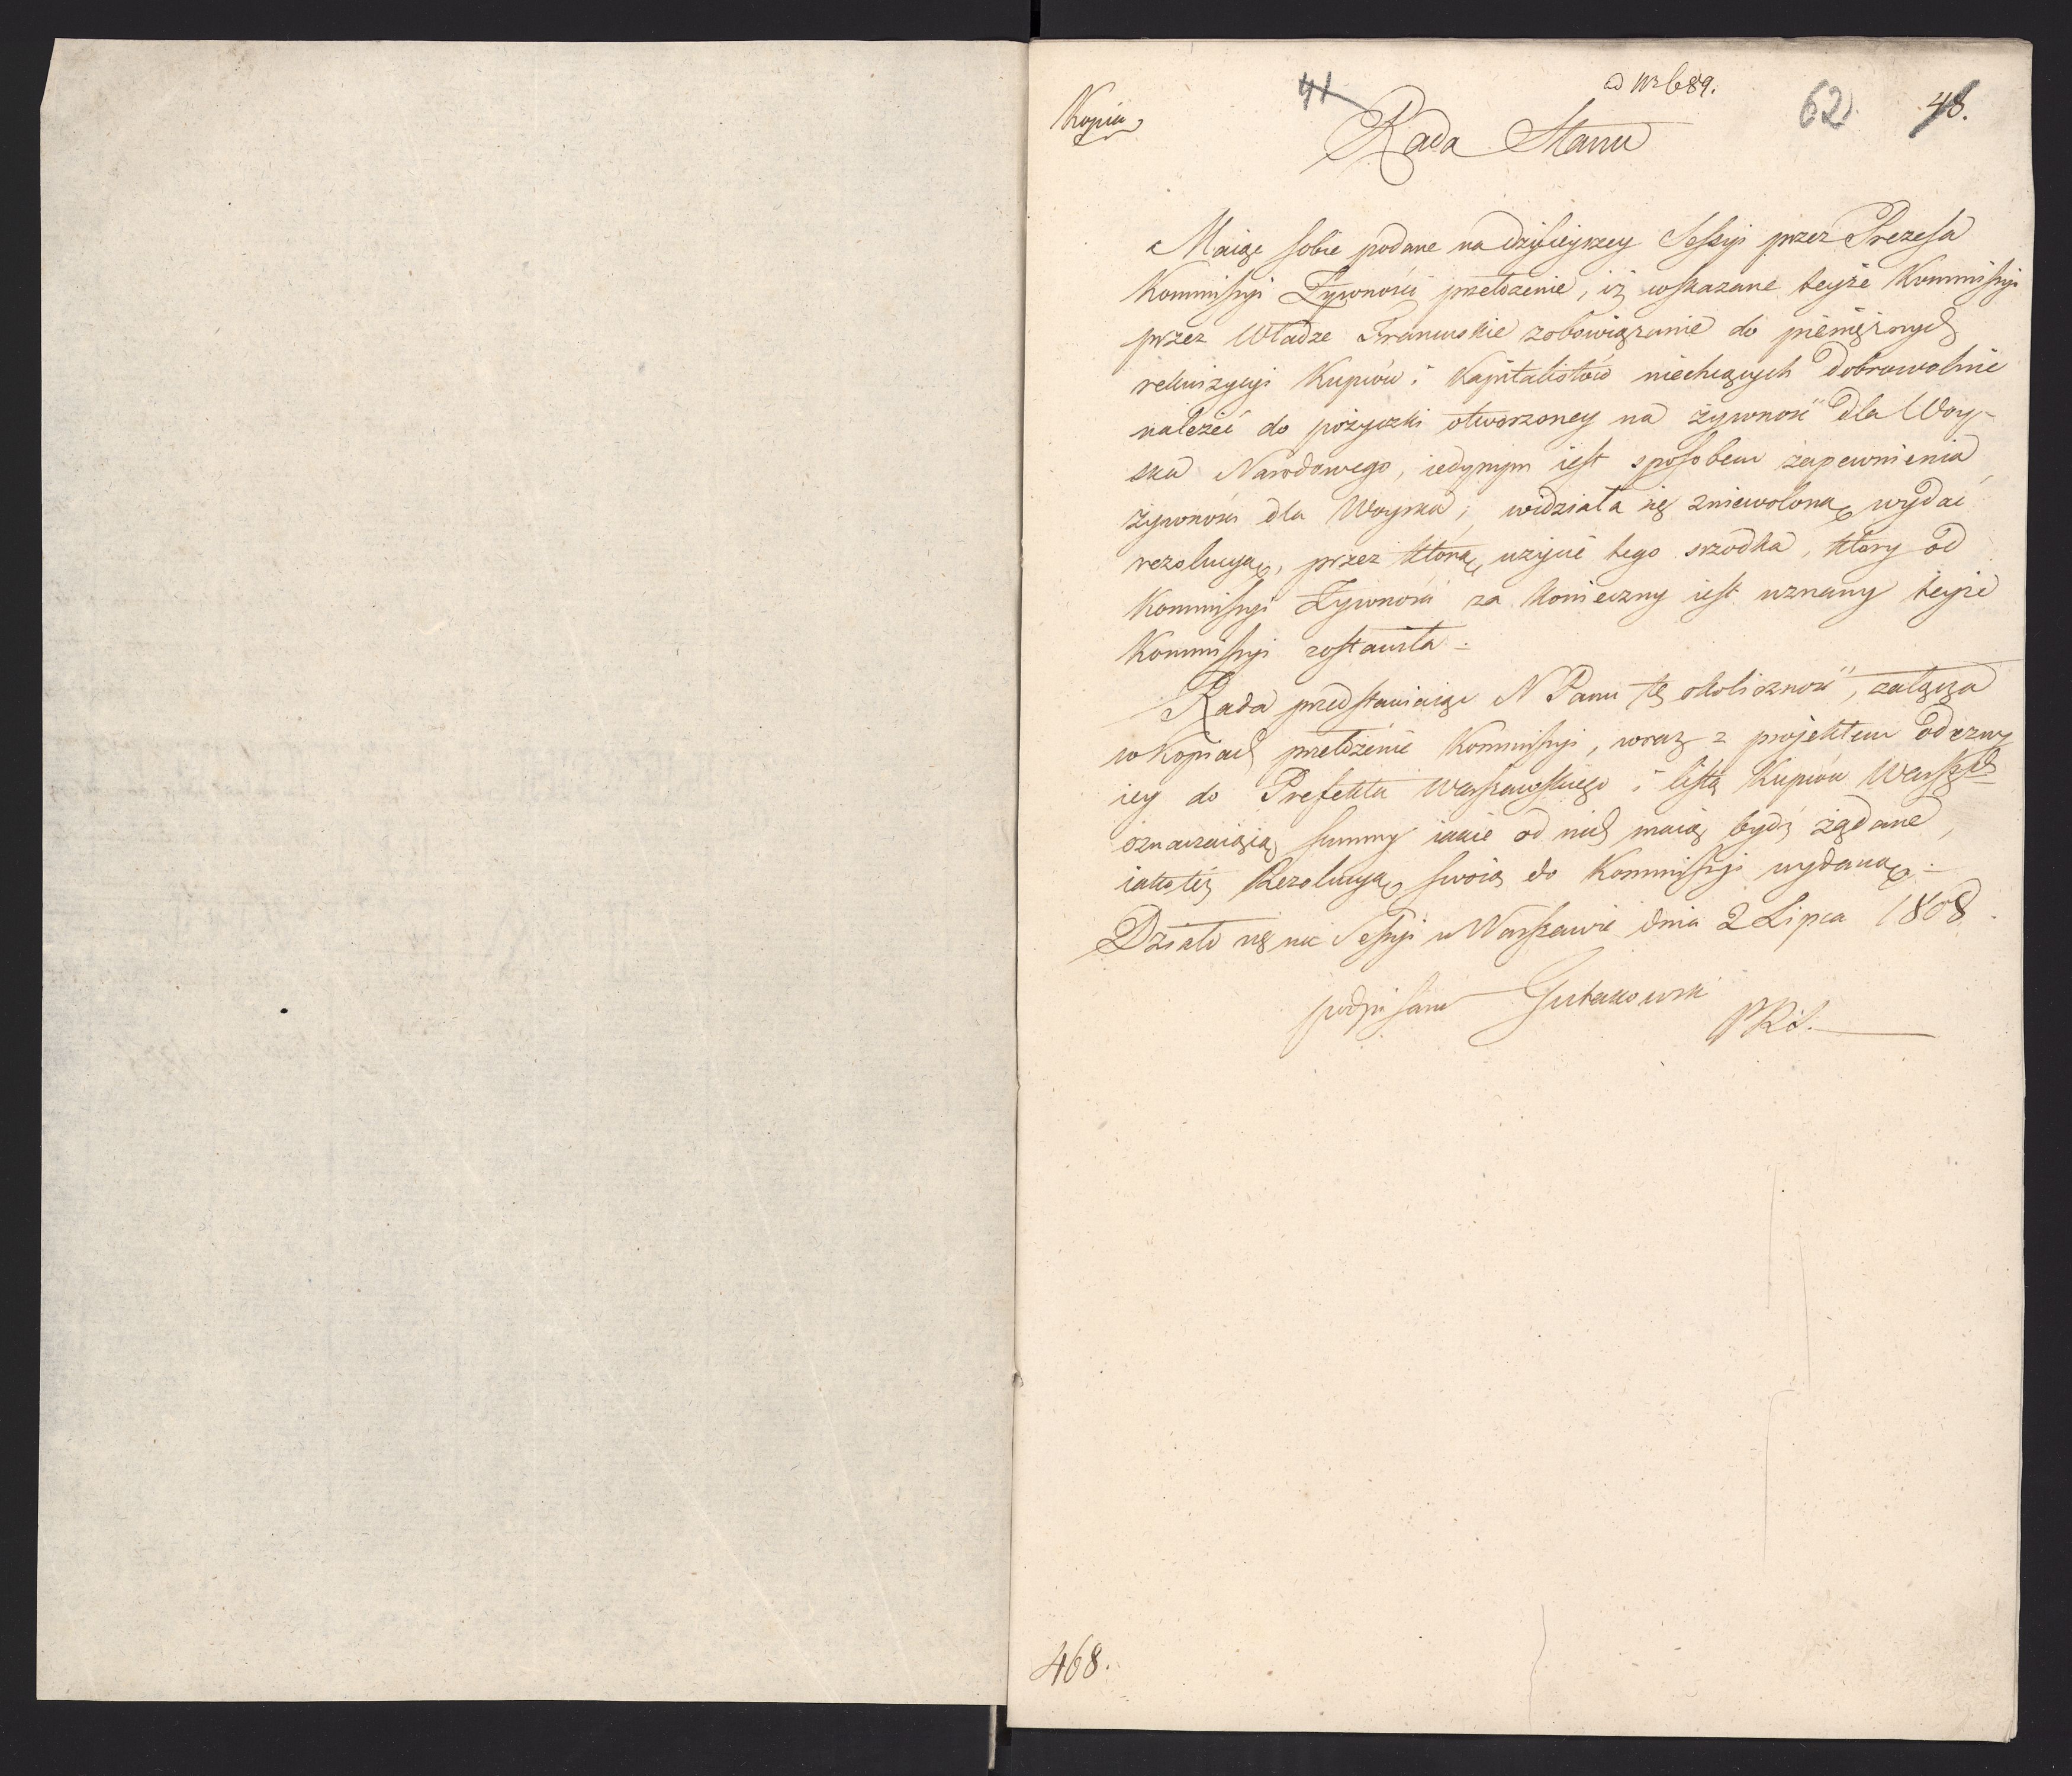 Kopia
41
ad Nr 689.
62
48.
Rada Stanu
Maiąc sobie podane na dzisieyszey Sessyi przez Prezesa
Kommissyi Żywności przełożenie, iż wskazane teyże Kommissyi
przez Władze Francuskie zobowiązanie do pieniężnych
rekwizycyi Kupców i Kapitalistów niechcących dobrowolnie
należeć do pożyczki otworzoney na żywność dla Woy-
ska Narodowego, iedynym iest sposobem zapewnienia
żywności dla Woyska; widziała się zniewoloną wydać
rezolucyą, przez którą użycie tego srzodka, który od
Kommissyi Żywności za konieczny iest uznany teyże
Kommissyi zostawiła.
Rada przedstawiaiąc N Panu tę okoliczność, załącza
w kopiach przełożenie Kommissyi, wraz z projektem odezwy
iey do Prefekta Warszawskiego i listą Kupców Warszch
oznaczaiącą summy iakie od nich maią bydź żądane,
iako też Rezolucyą swoią do Kommissyi wydaną.
Działo się na Sessyi w Warszawie dnia 2 Lipca 1808.
podpisano Gutakowski
PRS.
468.